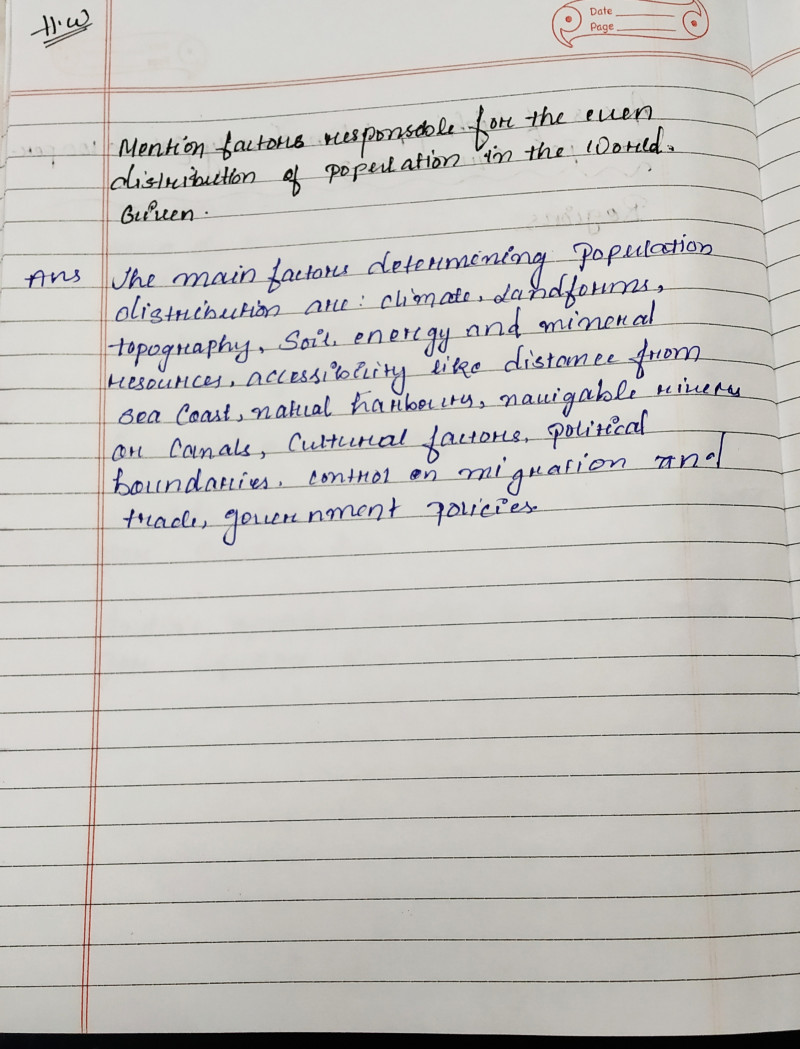 H.W
Date
Page
Mention factors responsoble for the even
distribution of population in the World.
Ans The main factors determining population
distribution are: climate, Landforms,
topography, Soil, energy and mineral
resources, accessibility like distance from
sea Coast, natual harbours, navigable rivers
or Canals, Cultural factors, political
boundaries, control on migration and
trade, government policies.